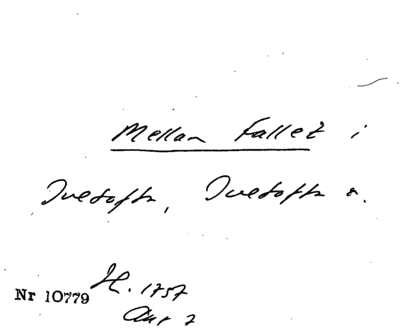 Mellan Fallet i
Ivetofta, Ivetofta s.
Nr 10779 H. 1757